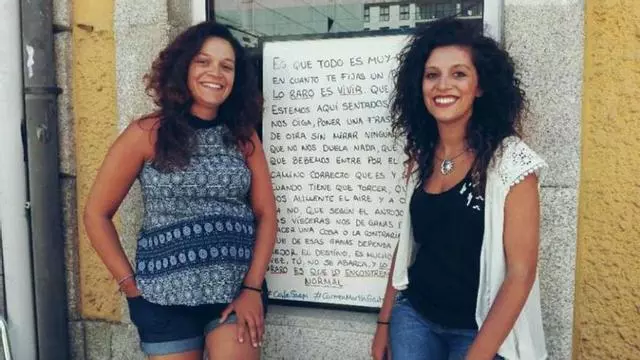 ES QUE TODO ES MUY
EN CUANTO TE FIJAS UN
LO RARO ES VIVIR. QUE
ESTEMOS AQUÍ SENTADOS
NOS OIGA, PONER UNA FRAS
DE OTRA SIN MIRAR NINGU
QUE NO NOS DUELA NADA,
QUE BEBEMOS ENTRE POR EL
CAMINO CORRECTO QUE ES Y
CUANDO TIENE QUE TORCER, QU
NOS ALIMENTE EL AIRE Y A O
A NO, QUE SEGÚN EL ANTOJO
VÍSCERAS NOS DE GANAS
ACER UNA COSA O LA CONTRARIA
UE DE ESAS GANAS DEPENDA
EJOR EL DESTINO, ES MUCHO
EZ, TÚ, NO SE ABARCA, Y LO
RARO ES QUE LO ENCONTREM
NORMAL
#CarmenMartínGaite